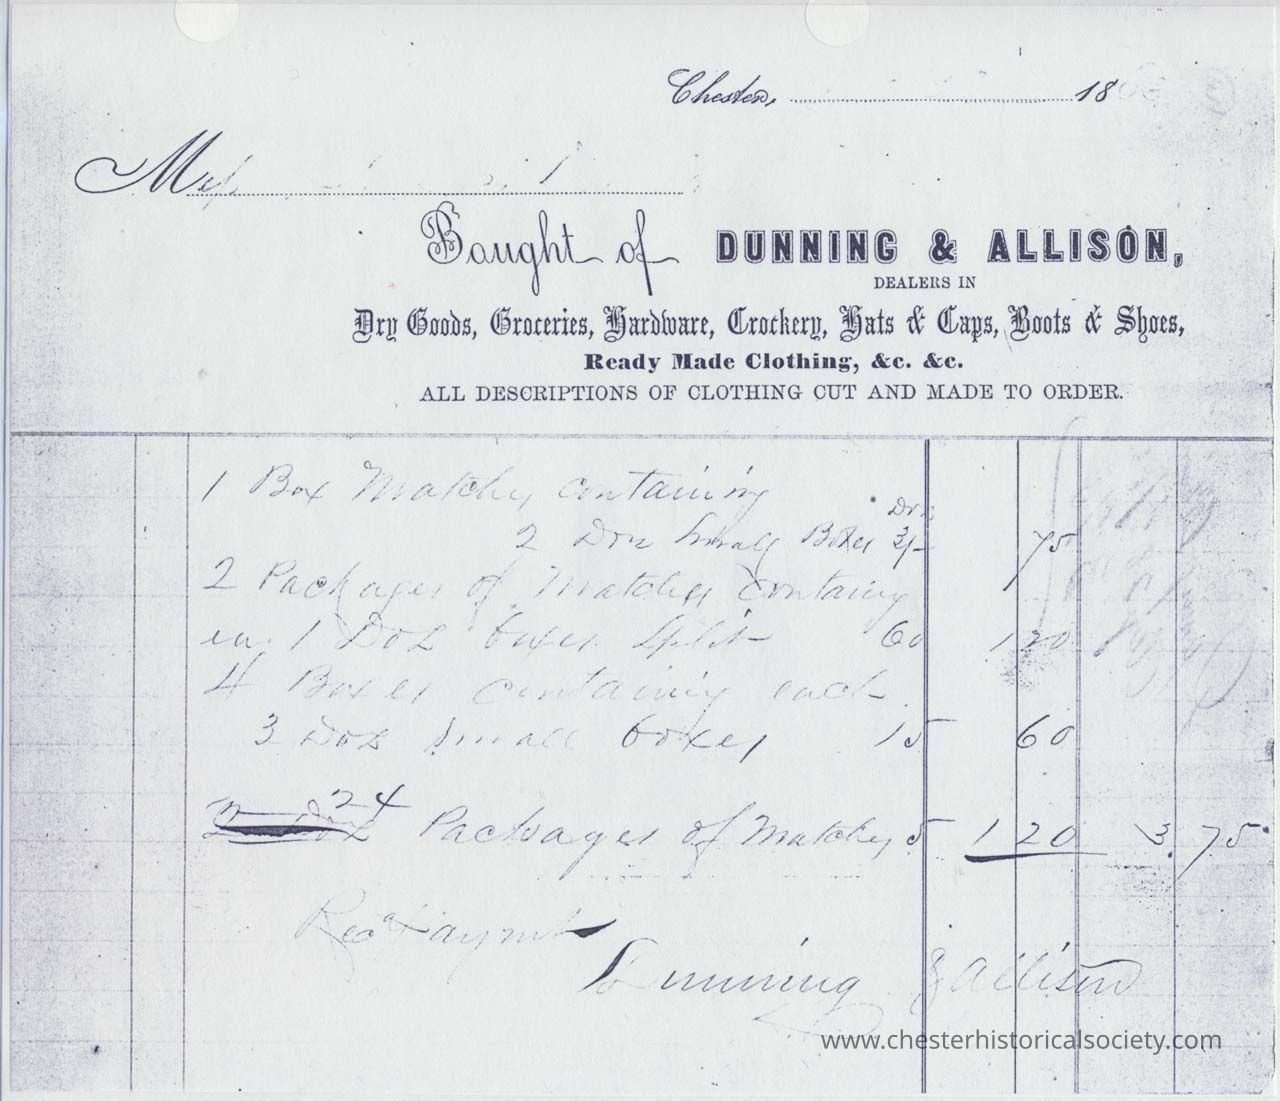 Chester, 18
Mess
Bought of DUNNING & ALLISON,
DEALERS IN
Dry Goods, Groceries, Hardware, Crockery, Hats & Caps, Boots & Shoes,
Ready Made Clothing, &c. &c.
ALL DESCRIPTIONS OF CLOTHING CUT AND MADE TO ORDER.
1 Box Matches containing
Doz
2 Doz Small Boxes 3/- 75
2 Packages of Matches containing
ea. 1 Doz boxes Split 60 1 20
4 Boxes containing each
3 Doz Small boxes 15 60
24
Packages of Matches 5 1 20 3.75
Recd Paymt
Dunning & Allison
www.chesterhistoricalsociety.com